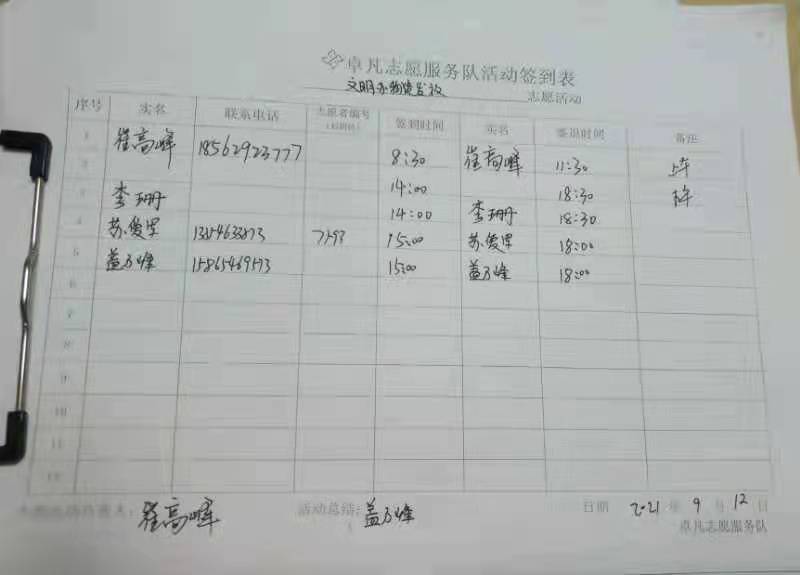 卓凡志愿服务队活动签到表
文明办物资发放 志愿活动
序号 实名 联系电话 志愿者编号 签到时间 实名 签退时间 备注
1 崔高峰 18562923777 8:30 崔高峰 11:30 上午
2 14:00 18:30
3 李珊 14:00 李珊 18:30
4 苏俊军 15:00 苏俊军 18:00
5 盖方峰 15865469573 15:00 盖方峰 18:00
6
7
8
9
10
11
12
崔高峰 活动总结: 盖方峰 日期 2021年9月12日
卓凡志愿服务队